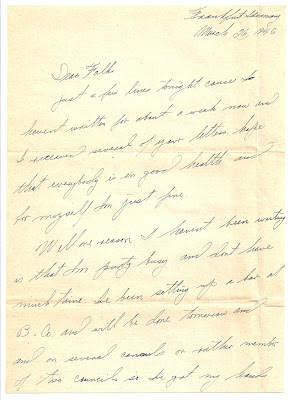 Frankfurt Germany
March 26, 1946
Dear Folks
Just a few lines tonight cause I
havent written for about a week now and
I received several of your letters, hope
that everybody is in good health and
for myself Im just fine
Well one reason I havent been writing
is that Im pretty busy and dont have
much time. Ive been setting up a bar at
B. Co. and will be done tomorrow and
and on several councils or rather member
of two councils so Ive got my hand